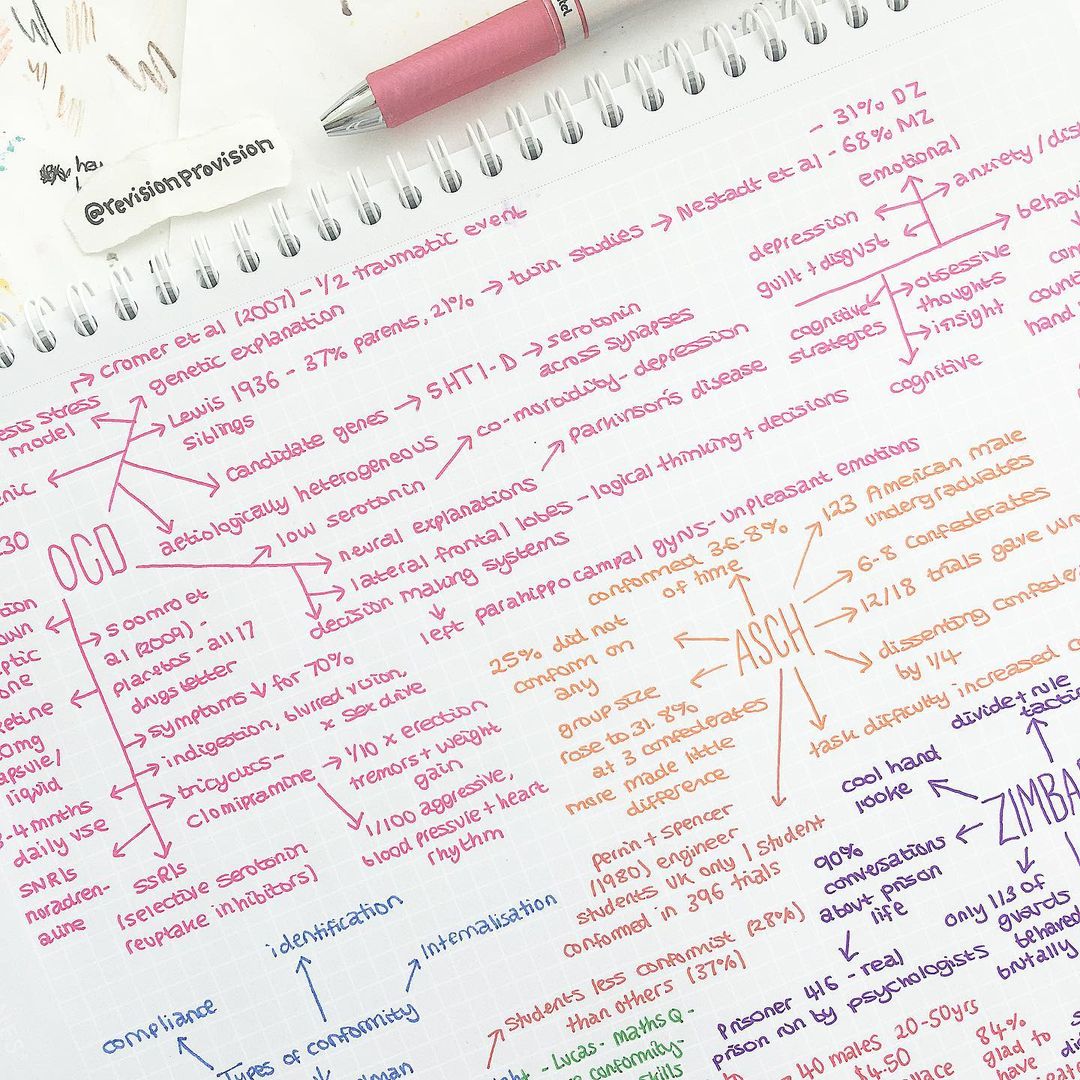 @revisionprovision
cromer et al (2007) - 1/2 traumatic event
genetic explanation
Lewis 1936 - 37% parents, 21%
siblings
twin studies
Nestadt et al - 68% MZ
- 31% DZ
stress
model
candidate genes → 5HT1-D → serotonin
across synapses
aetiologically heterogeneous
OCD
low serotonin
co-morbidity - depression
neural explanations
Parkinson's disease
lateral frontal lobes - logical thinking + decisions
decision making systems
left parahippocampal gyrus - unpleasant emotions
emotional
depression
guilt + disgust
anxiety /
cognitive
strategies
obsessive
thoughts
insight
cognitive
hand
soomro et
al (2009) -
placebos - all 17
drugs better
symptoms ↓ for 70%
indigestion, blurred vision,
x sex drive
tricyclics -
clomipramine
1/10 x erection
tremors + weight
gain
1/100 aggressive,
blood pressure + heart
rhythm
SSRIs
(selective serotonin
reuptake inhibitors)
liquid
3-4 mnths
daily use
SNRIs
noradren-
aline
ASCH
conformed 36.8%
of time
123 American male
undergraduates
6-8 confederates
12/18 trials gave
dissenting
by 1/4
task difficulty increased
25% did not
conform on
any
group size
rose to 31.8%
at 3 confederates
more made little
difference
perrin + spencer
(1980) engineer
students UK only 1 student
conformed in 396 trials
students less conformist (28%)
than others (37%)
ZIMBA
divide + rule
cool hand
looke
90%
conversations
about prison
life
only 1/3 of
guards
behaved
brutally
Prisoner 416 - real
prison run by psychologists
identification
Internalisation
compliance
Types of conformity
- Lucas - maths Q -
conformity -
skills
40 males 20-50yrs
$4.50
84%
glad to
have